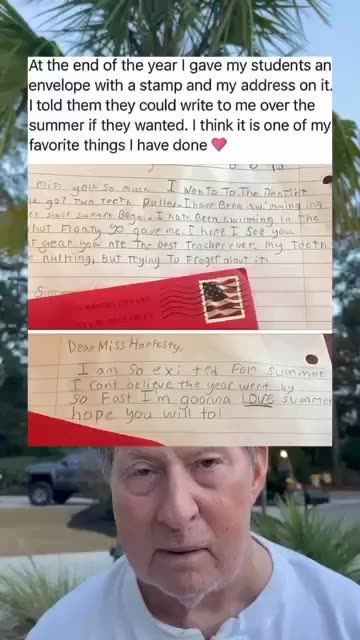 At the end of the year I gave my students an
envelope with a stamp and my address on it.
I told them they could write to me over the
summer if they wanted. I think it is one of my
favorite things I have done
Miss you so much I Wan To To The Dentist
got Two teeth pulled I have Been swimming
since summer Began I have Been swimming in the
Floaty gave me. I hope I see you
year you are the best Teacher ever. My Teeth
But Trying To about it
Dear Miss Hartesty,
I am so exi ted For summer
I cant believe the year went by
so Fast I'm goonna LOVE summer
hope you will to!